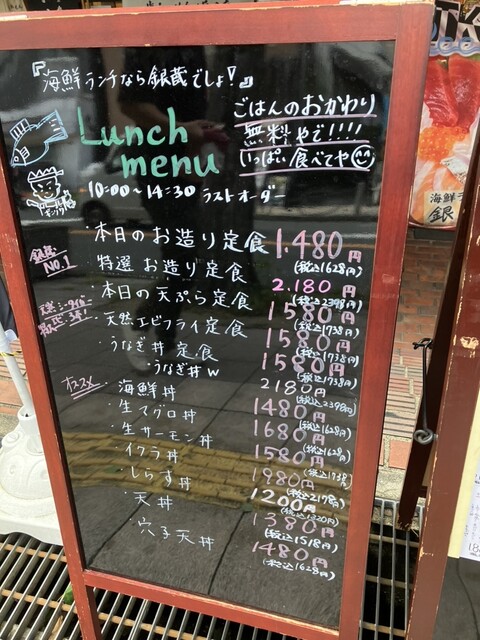 『海鮮ランチなら銀蔵でしょ!』
Lunch
menu
ごはんのおかわり
無料やで!!!!
いっぱい食べてや
10:00~14:30 ラストオーダー
銀蔵
NO.1
・本日のお造り定食 1.480円
(税込1628円)
・特選お造り定食 2.180円
(税込2398円)
・本日の天ぷら定食 1580円
(税込1738円)
・天然エビフライ定食 1580円
(税込1738円)
・うなぎ丼定食 1580円
(税込1738円)
うなぎ丼W 2180円
(税込2398円)
オススメ
・海鮮丼 1480円
(税込1628円)
・生マグロ丼 1680円
・生サーモン丼 1580円
(税込1738円)
・イクラ丼 1980円
(税込2178円)
・しらす丼 1200円
(税込1320円)
・天丼 1380円
(税込1518円)
・穴子天丼 1480円
(税込1628円)
海鮮
銀